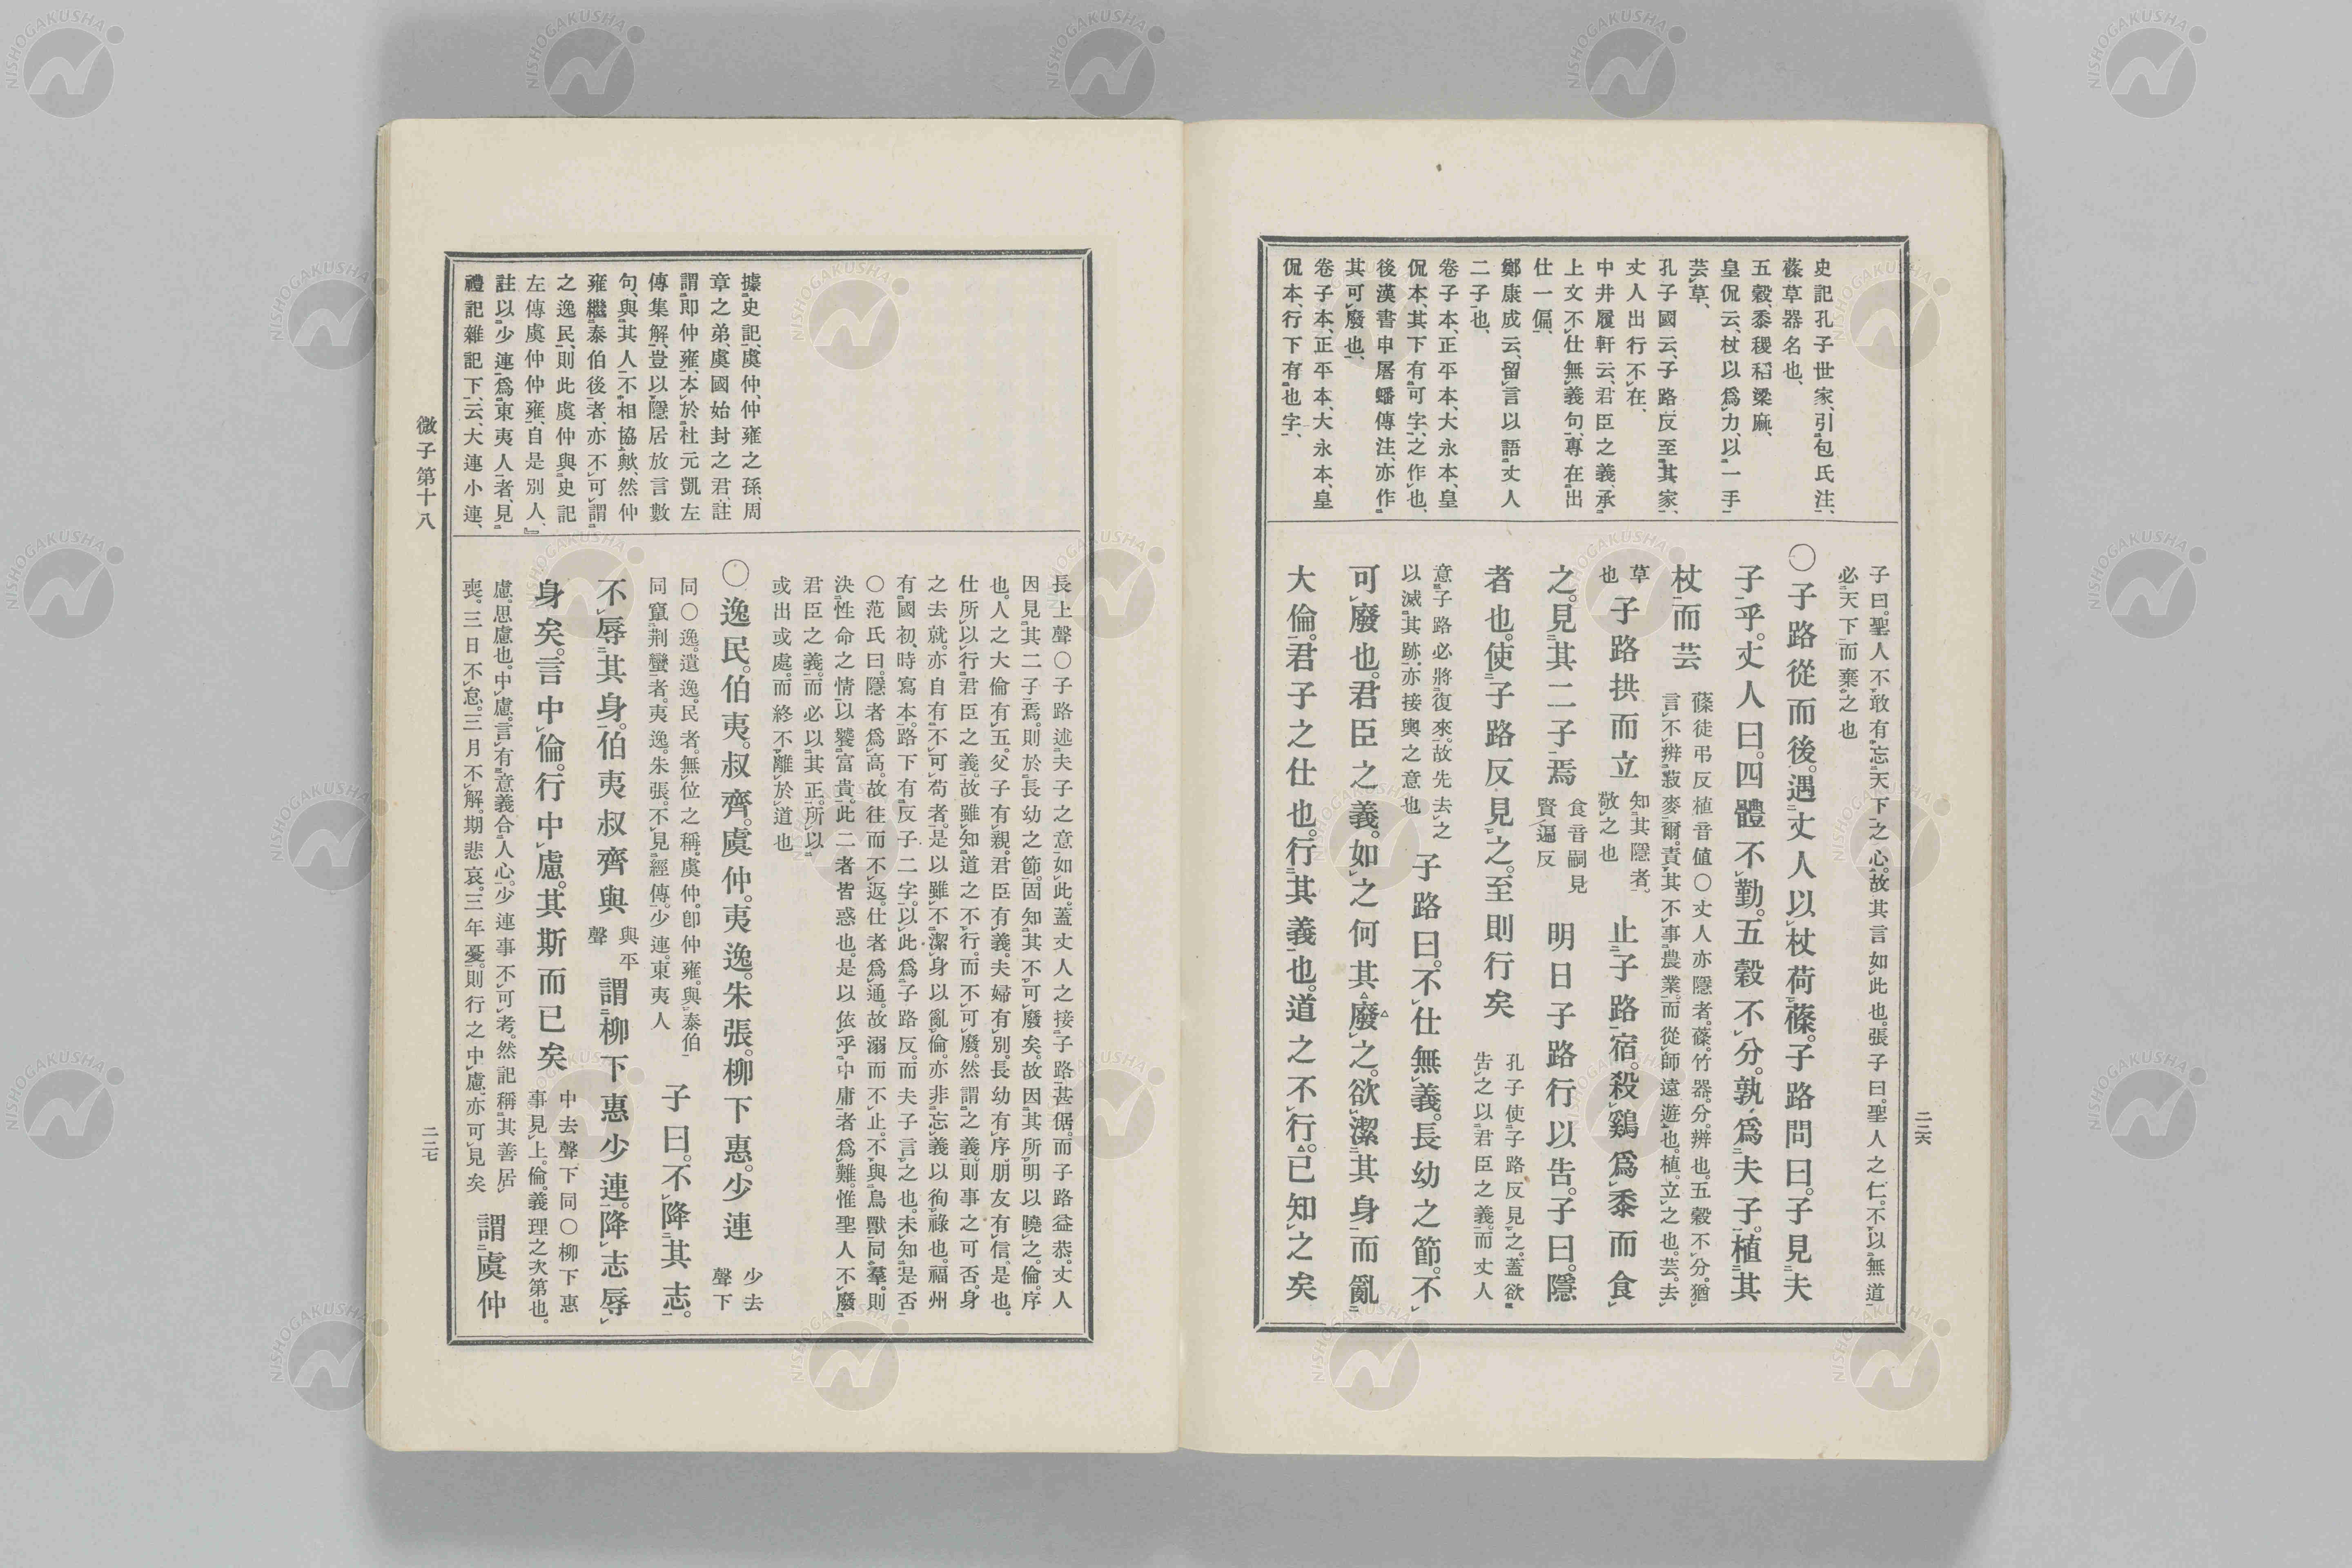 史記孔子世家、引包氏注、
蓧草器名也、
五穀、黍稷稻粱麻、
皇侃云、杖以爲力、以一手
芸草、
孔子國云、子路反至其家、
丈人出行不在、
中井履軒云、君臣之義、承
上文不仕無義句、專在出
仕一偏、
鄭康成云、留言以語丈人
二子也、
卷子本、正平本、大永本、皇
侃本、其下有可字、之作也、
後漢書申屠蟠傳注、亦作
其可廢也、
卷子本、正平本、大永本、皇
侃本、行下有也字、
子曰。聖人不敢有忘天下之心。故其言如此也。張子曰。聖人之仁。不以無道
必天下而棄之也
〇子路從而後。遇丈人以杖荷蓧。子路問曰。子見夫
子乎。丈人曰。四體不勤。五穀不分。孰爲夫子。植其
杖而芸 蓧徒弔反植音値〇丈人亦隱者。蓧。竹器。分。辨也。五穀不分。猶
言不辨菽麥爾。責其不事農業。而從師遠遊也。植。立之也。芸。去
草
也 子路拱而立 知其隱者。
敬之也 止子路宿。殺鷄爲黍而食
之。見其二子焉 食音嗣見
賢遍反 明日子路行以告。子曰。隱
者也。使子路反見之。至則行矣 孔子使子路反見之。蓋欲
告之以君臣之義。而丈人
意子路必將復來。故先去之
以滅其跡、亦接輿之意也 子路曰。不仕無義。長幼之節。不
可廢也。君臣之義。如之何其廢之。欲潔其身而亂
大倫。君子之仕也。行其義也。道之不行。已知之矣
二二六
據史記、虞仲、仲雍之孫、周
章之弟、虞國始封之君、註
謂卽仲雍、本於杜元凱左
傳集解、豈以隱居放言數
句、與其人不相協歟、然仲
雍繼泰伯後者、亦不可謂
之逸民、則此虞仲與史記
左傳虞仲仲雍、自是別人、』
註以少連爲東夷人者、見
禮記雜記下、云、大連小連、
長上聲〇子路述夫子之意如此。蓋丈人之接子路甚倨。而子路益恭。丈人
因見其二子焉。則於長幼之節。固知其不可廢矣。故因其所明以曉之。倫。序
也。人之大倫有五。父子有親。君臣有義。夫婦有別。長幼有序。朋友有信。是也。
仕所以行君臣之義。故雖知道之不行。而不可廢。然謂之義。則事之可否。身
之去就。亦自有不可苟者。是以雖不潔身以亂倫。亦非忘義以徇祿也。福州
有國初時寫本。路下有反子二字。以此爲子路反。而夫子言之也。未知是否
〇范氏曰。隱者爲高。故往而不返。仕者爲通。故溺而不止。不與鳥獸同羣。則
決性命之情以饕富貴。此二者皆惑也。是以依乎中庸者爲難。惟聖人不廢
君臣之義。而必以其正。所以
或出或處。而終不離於道也
〇逸民。伯夷。叔齊。虞仲。夷逸。朱張。柳下惠。少連 少去
聲下
同〇逸。遺逸。民者。無位之稱。虞仲。卽仲雍。與泰伯
同竄荆蠻者。夷逸。朱張。不見經傳。少連。東夷人 子曰。不降其志。
不辱其身。伯夷叔齊與 與平
聲 謂柳下惠少連。降志辱
身矣。言中倫。行中慮。其斯而已矣 中去聲下同〇柳下惠
事見上。倫。義理之次第也。
慮。思慮也。中慮。言有意義合人心。少連事不可考。然記稱其善居
喪。三日不怠。三月不解。期悲哀。三年憂。則行之中慮。亦可見矣 謂虞仲
微子第十八
二二七